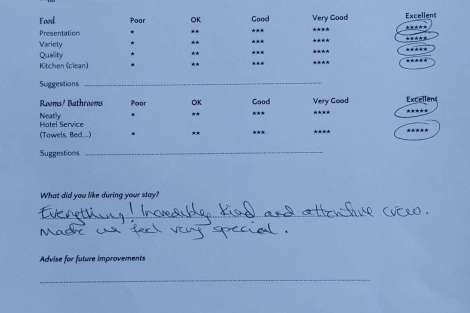 Food Poor OK Good Very Good Excellent
Presentation * ** *** **** *****
Variety * ** *** **** *****
Quality * ** *** **** *****
Kitchen (clean) * ** *** **** *****
Suggestions
Rooms/ Bathrooms Poor OK Good Very Good Excellent
Neatly * ** *** **** *****
Hotel Service
(Towels, Bed...) * ** *** **** *****
Suggestions
What did you like during your stay?
Everything! Incredibly kind and attentive crew.
Made us feel very special.
Advise for future improvements